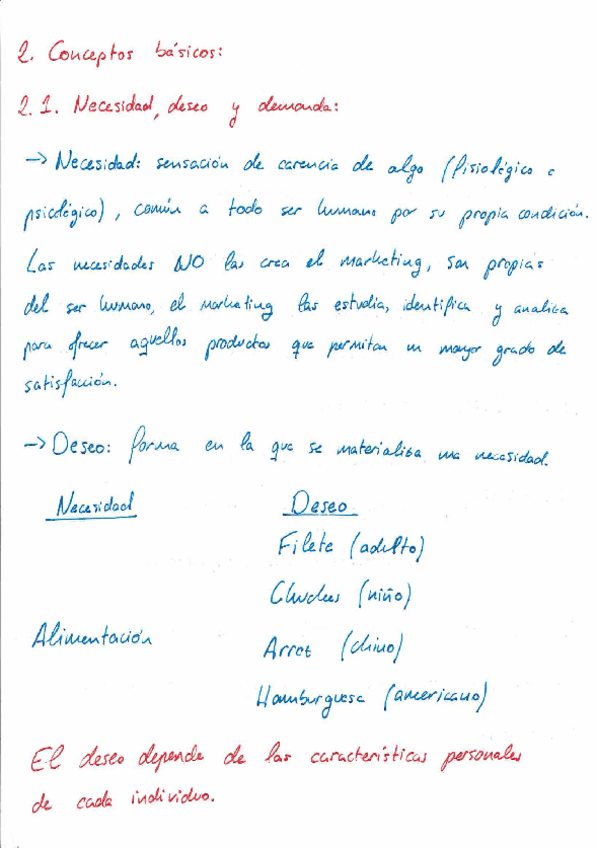 2. Conceptos básicos:
2.1. Necesidad, deseo y demanda:
-> Necesidad: sensación de carencia de algo (fisiológico o
psicológico), común a todo ser humano por su propia condición.
Las necesidades NO las crea el marketing, son propias
del ser humano, el marketing las estudia, identifica y analiza
para ofrecer aquellos productos que permitan un mayor grado de
satisfacción.
-> Deseo: forma en la que se materializa una necesidad.
Necesidad Deseo
Filete (adulto)
Chuches (niño)
Alimentación
Arroz (chino)
Hamburguesa (americano)
El deseo depende de las características personales
de cada individuo.